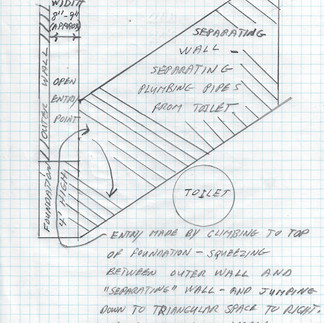 WIDTH
8"-9"
(APPROX)
OPEN
ENTRY
POINT
OUTER WALL
FOUNDATION
4' HIGH
SEPARATING
WALL -
SEPARATING
PLUMBING PIPES
FROM TOILET
TOILET
ENTRY MADE BY CLIMBING TO TOP
OF FOUNDATION - SQUEEZING
BETWEEN OUTER WALL AND
"SEPARATING" WALL - AND JUMPING
DOWN TO TRIANGULAR SPACE TO RIGHT.